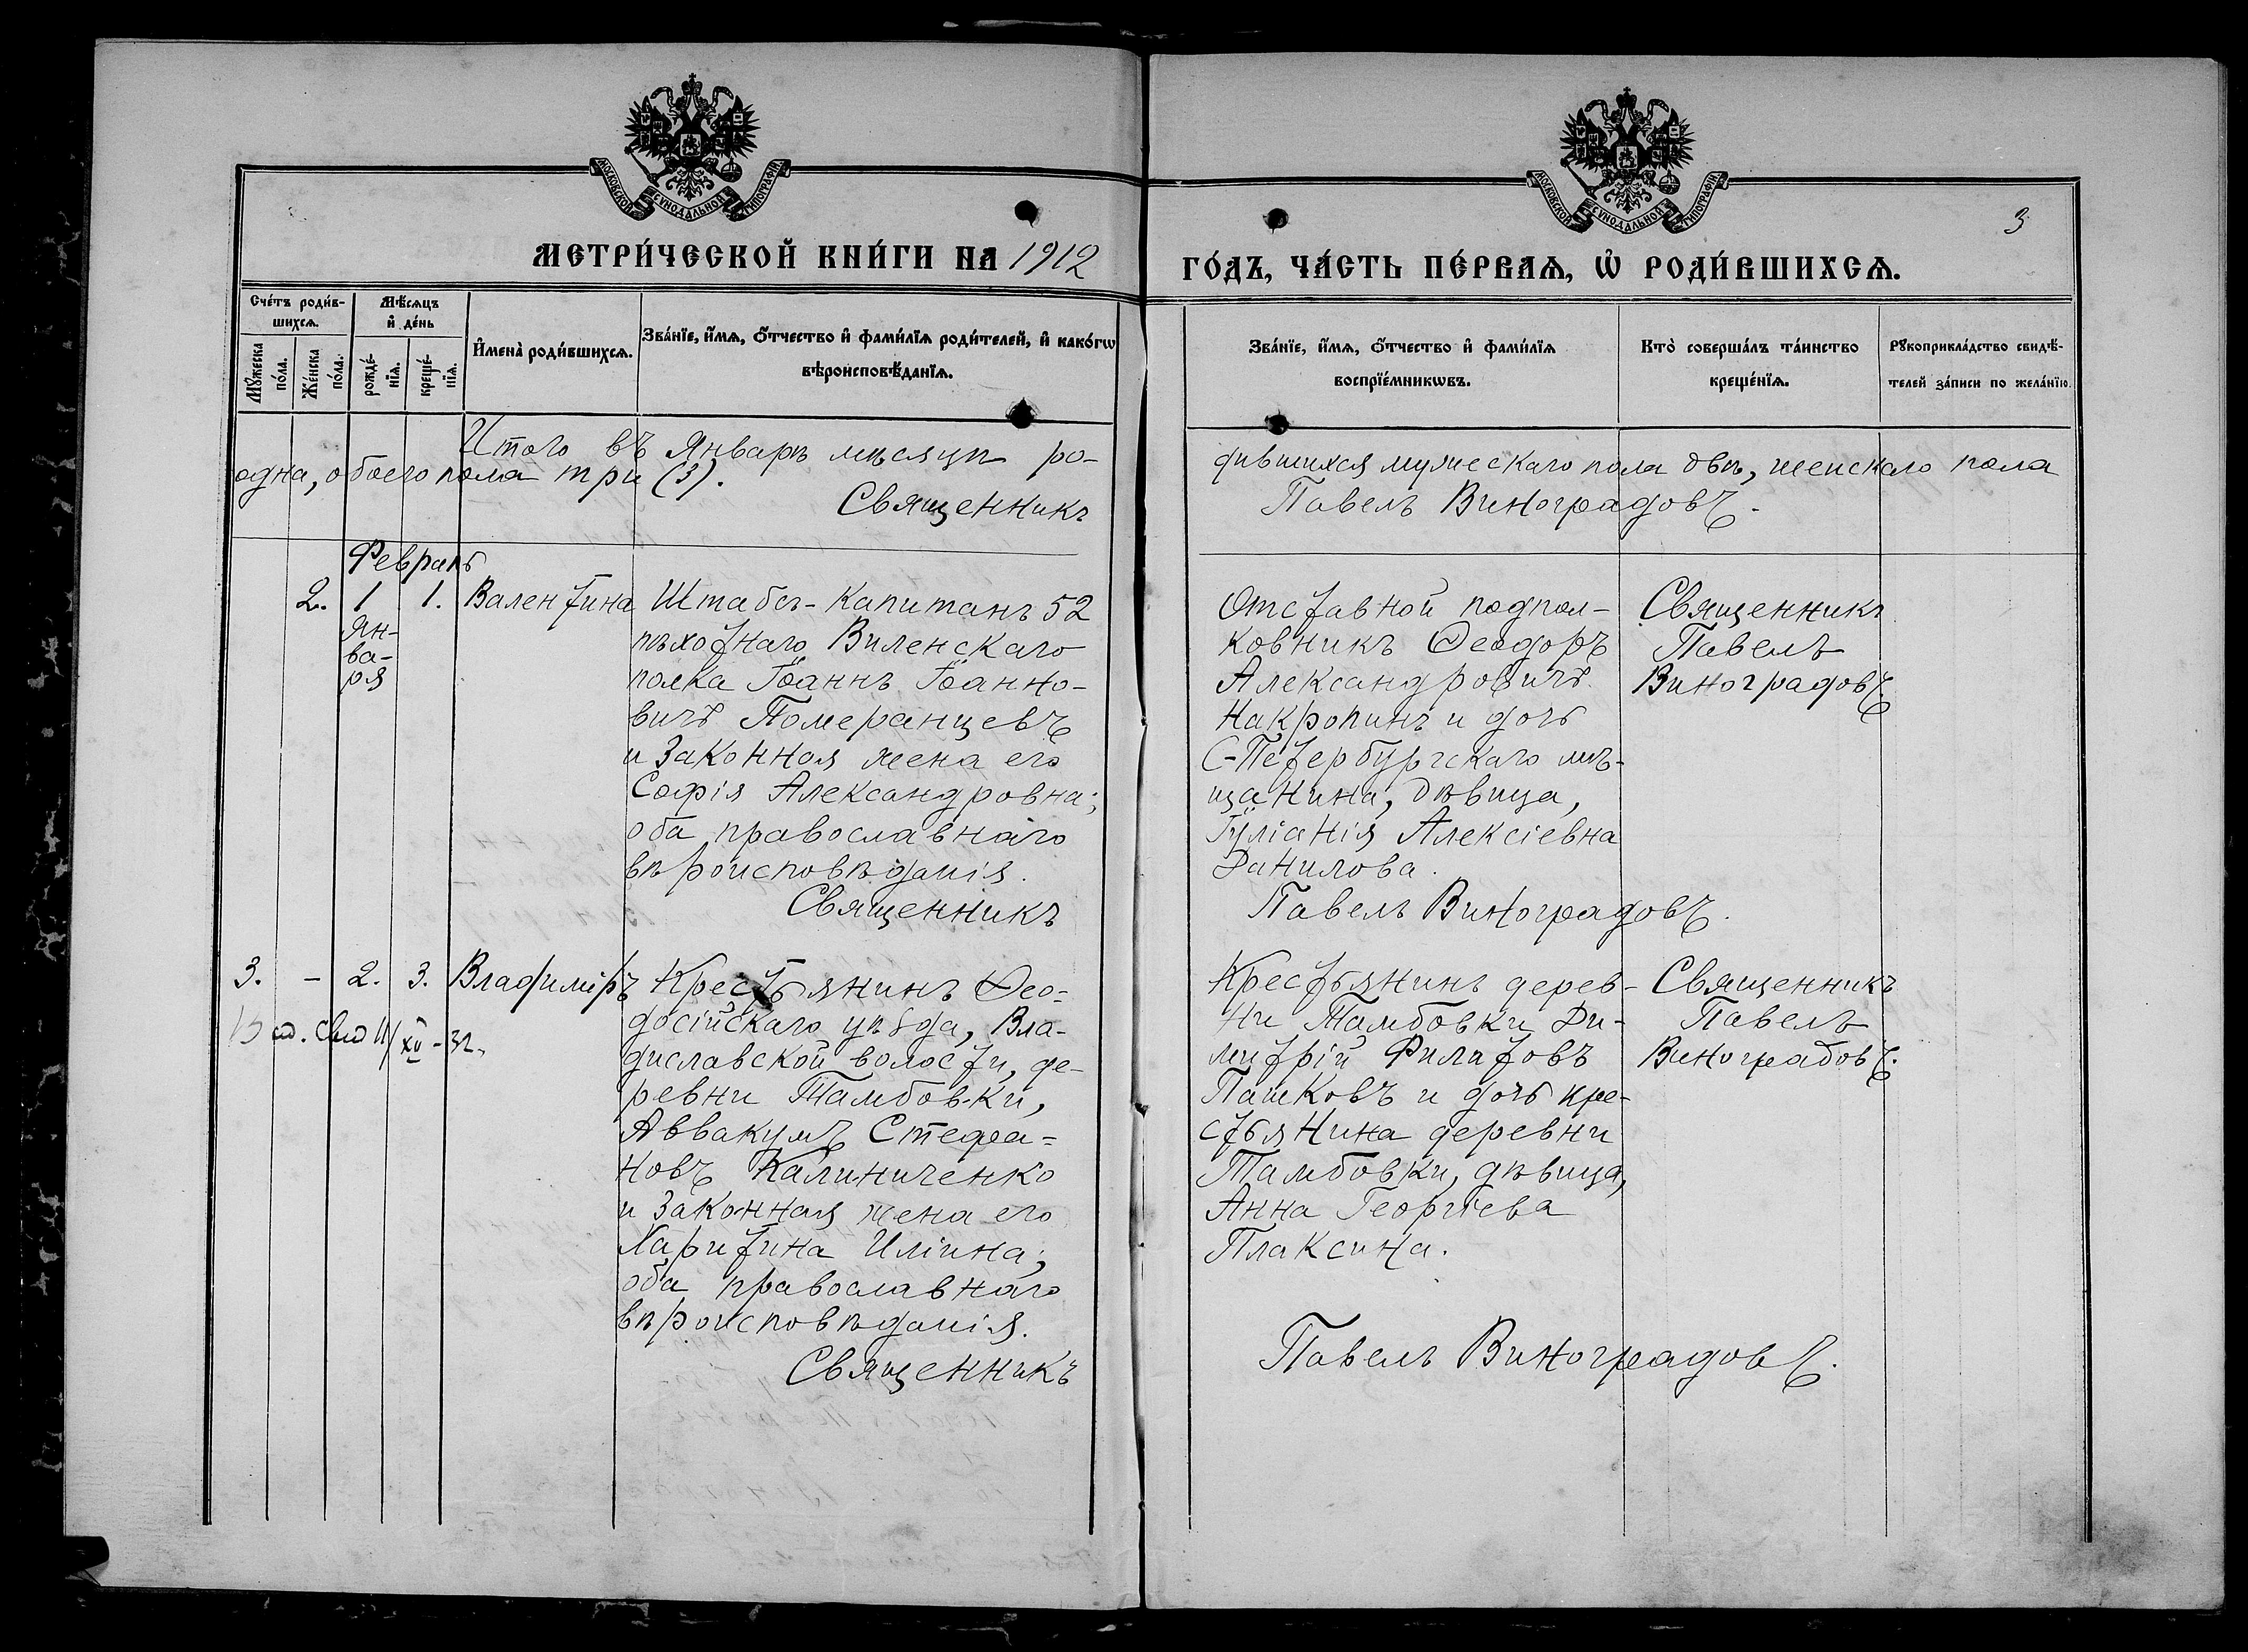 МОСКОВСКОЙ СѴНОДАЛЬНОЙ ТИПОГРАФІИ
МОСКОВСКОЙ СѴНОДАЛЬНОЙ ТИПОГРАФІИ
3
МЕТРИ́ЧЕСКОЙ КНИ́ГИ НА 1912
ГО́ДЪ, ЧА́СТЬ ПЕ́РВАѦ, Ѽ РОДИ́ВШИХСѦ.
Сче́тъ роди́в-
шихсѧ.
Мꙋ́жеска
по́ла.
Же́нска
по́ла.
Мѣ́сѧцъ
и҆ де́нь
рожде́-
нїѧ.
креще́-
нїѧ.
И҆мена̀ роди́вшихсѧ.
Зва́нїе, и҆́мѧ, ѻ҆́тчество и҆ фами́лїѧ роди́телей, и҆ како́гѡ
вѣроисповѣ́данїѧ.
Зва́нїе, и҆́мѧ, ѻ҆́тчество и҆ фами́лїѧ
воспрїе́мникѡвъ.
Кто̀ соверша́лъ та́инство
креще́нїѧ.
Рꙋкоприкла́дство свидѣ́-
телей за́писи по жела́нїю.
Итого въ Январѣ мѣсяцѣ ро-
дившихся мужескаго пола два, женскаго пола
одна, обоего пола три (3).
Священникъ
Павелъ Виноградовъ.
Февраль
2. 1 1. Валентина
Ян-
ва-
ря
Штабсъ-Капитанъ 52
пѣхотнаго Виленскаго
полка Іоаннъ Іоанно-
вичъ Померанцевъ
и законная жена его
Софія Александровна;
оба православнаго
вѣроисповѣданія.
Священникъ
Отставной подпол-
ковникъ Ѳеодоръ
Александровичъ
Накропинъ и дочь
С-Петербургскаго мѣ-
щанина, дѣвица,
Іуліанія Алексіевна
Данилова.
Павелъ Виноградовъ.
Священникъ
Павелъ
Виноградовъ.
3. - 2. 3. Владиміръ
XII - 32.
Крестьянинъ Ѳео-
досійскаго уѣзда, Вла-
диславской волости, де-
ревни Тамбовки,
Аввакумъ Стефа-
новъ Калиниченко
и законная жена его
Харитина Иліина;
оба православнаго
вѣроисповѣданія.
Священникъ
Крестьянинъ дерев-
ни Тамбовки Ди-
митрій Филатовъ
Пашковъ и дочь кре-
стьянина деревни
Тамбовки, дѣвица,
Анна Георгіева
Плаксина.
Павелъ Виноградовъ.
Священникъ
Павелъ
Виноградовъ.